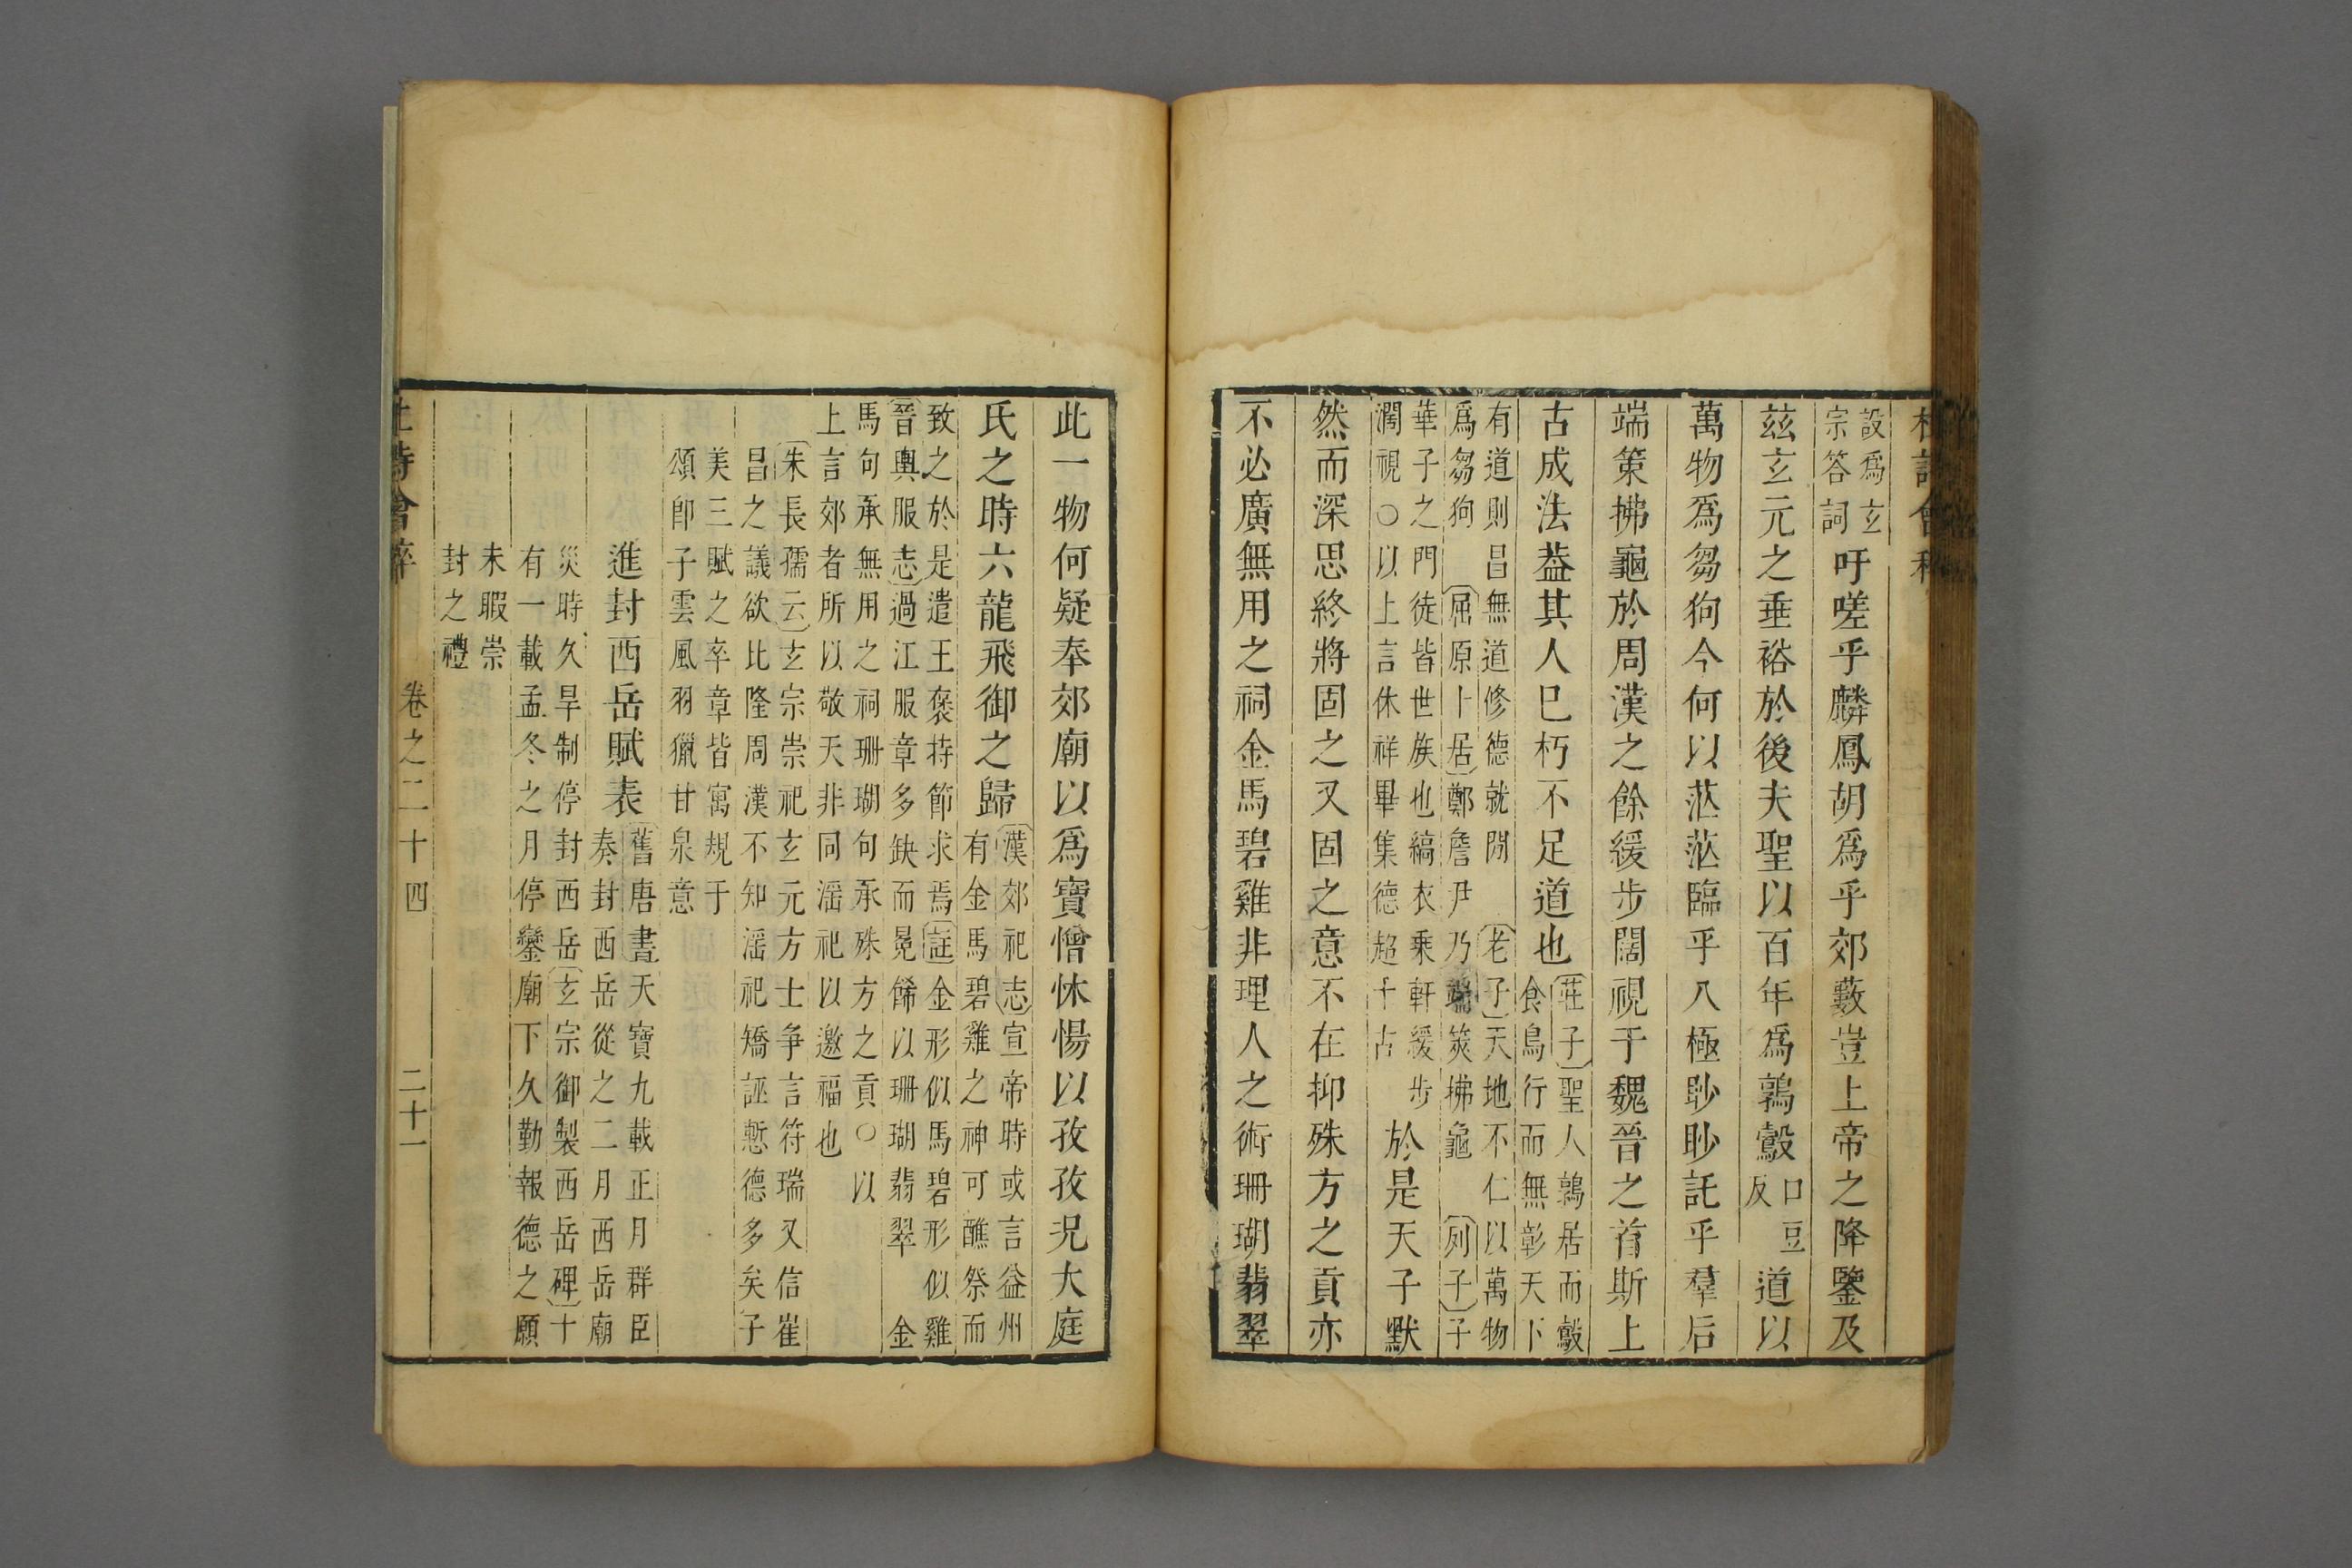 杜詩會稡
設爲玄
宗答詞
吁嗟乎麟鳳胡爲乎郊藪豈上帝之降鑒及
玆玄元之垂裕於後夫聖以百年爲鶉鷇
口豆
反
道以
萬物爲芻狗今何以茫茫臨乎八極眇眇託乎羣后
端策拂龜於周漢之餘緩步闊視于魏晉之首斯上
古成法葢其人已朽不足道也
莊子聖人鶉居而鷇
食鳥行而無彰天下
有道則昌無道修德就閒老子天地不仁以萬物
爲芻狗屈原卜居鄭詹尹乃端筴拂龜列子子
華子之門徒皆世族也縞衣乘軒緩步
濶視○以上言休祥畢集德超千古
於是天子默
然而深思終將固之又固之意不在抑殊方之貢亦
不必廣無用之祠金馬碧雞非理人之術珊瑚翡翠
此一物何疑奉郊廟以爲寶憎怵惕以孜孜況大庭
氏之時六龍飛御之歸
漢郊祀志宣帝時或言益州
有金馬碧雞之神可醮祭而
致之於是遣王褒持節求焉註金形似馬碧形似雞
晉輿服志過江服章多缺而冕飾以珊瑚翡翠金
馬句承無用之祠珊瑚句承殊方之貢○以
上言郊者所以敬天非同滛祀以邀福也
朱長孺云玄宗崇祀玄元方士争言符瑞又信崔
昌之議欲比隆周漢不知滛祀矯誣慙德多矣子
美三賦之卒章皆寓規于
頌卽子雲風羽獵甘泉意
進封西岳賦表
舊唐書天寶九載正月群臣
奏封西岳從之二月西岳廟
災時久旱制停封西岳玄宗御製西岳碑十
有一載孟冬之月停鑾廟下久勤報德之願
未暇崇
封之禮
杜詩會稡
卷之二十四
二十一